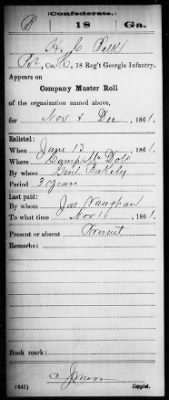 (Confederate.)
P 18 Ga.
H. C.
Pvt, Co. H, 18 Reg't Georgia Infantry.
Appears on
Company Muster Roll
of the organization named above,
for Nov & Dec, 1861.
Enlisted:
When June 13, 1861.
Where Camp McDold
By whom Genl
Period 3 Years
Last paid:
By whom Jas Vaughan
To what time Nov 1, 1861.
Present or absent Present
Remarks:
Book mark:
(642)
Copyist.